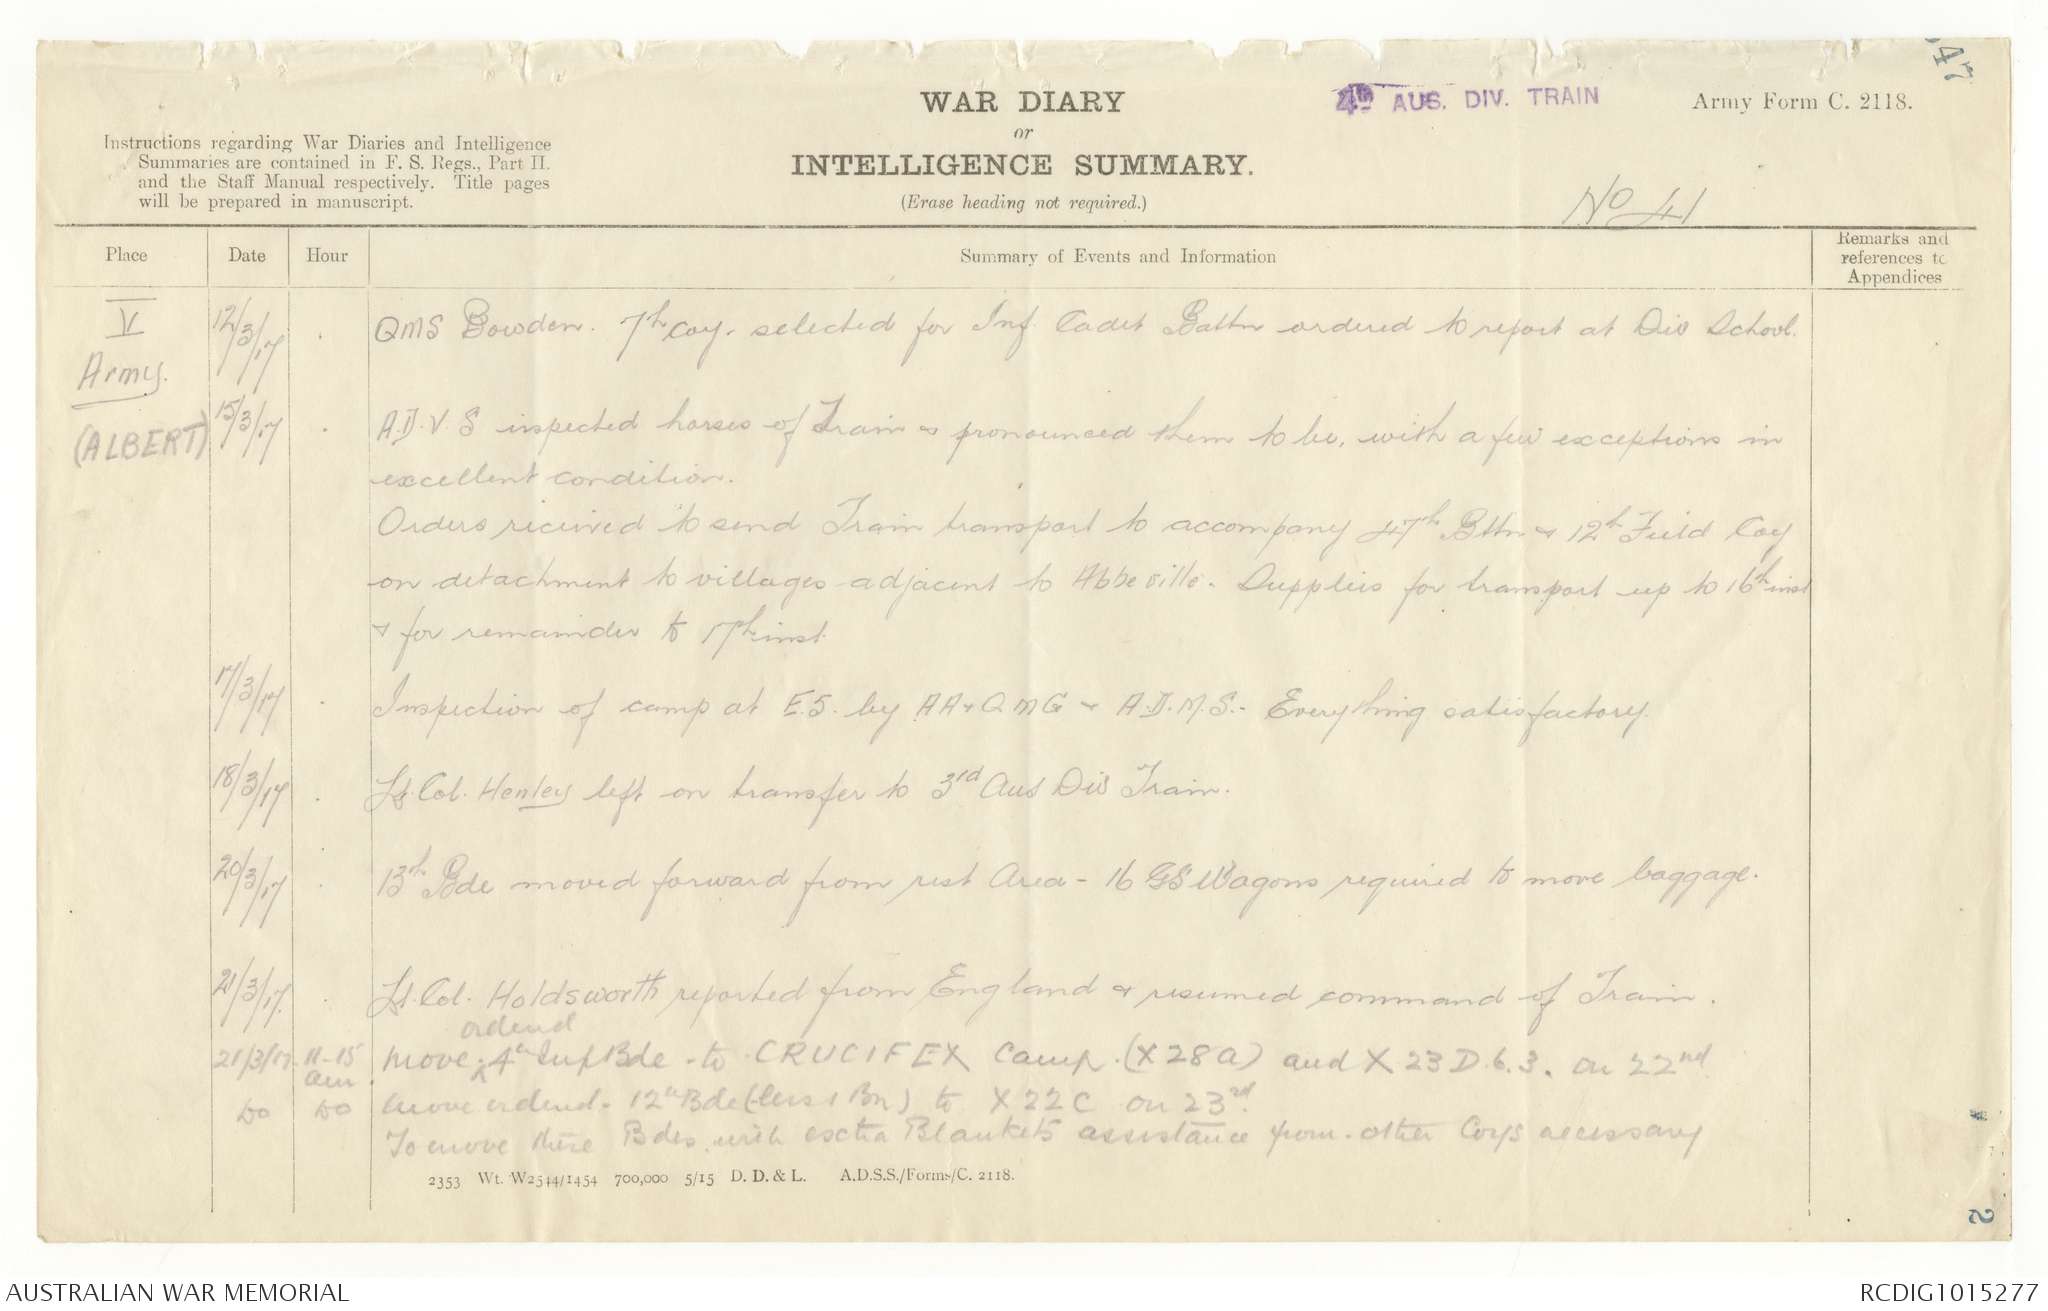 47
WAR DIARY
or
INTELLIGENCE SUMMARY.
(Erase heading not required.)
4th AUS. DIV. TRAIN
Army Form C. 2118.
Instructions regarding War Diaries and Intelligence
Summaries are contained in F. S. Regs., Part II.
and the Staff Manual respectively. Title pages
will be prepared in manuscript.
No 41
Place Date Hour Summary of Events and Information Remarks and
references to
Appendices
V
Army.
(ALBERT)
12/3/17 QMS Bowden. 7th Coy. selected for Inf. Cadet Battn ordered to report at Div School.
15/3/17 A.D.V.S inspected horses of Train & pronounced them to be, with a few exceptions in
excellent condition.
Orders received to send Train transport to accompany 47th Bttn & 12th Field Coy
on detachment to villages adjacent to Abbeville. Supplies for transport up to 16th inst
& for remainder to 17th inst.
17/3/17 Inspection of camp at E.5. by AA & QMG & A.D.M.S. - Everything satisfactory.
18/3/17 Lt. Col. Henley left on transfer to 3rd Aus Div Train.
20/3/17 13th Bde moved forward from rest Area - 16 GS Wagons required to move baggage.
21/3/17. Lt. Col. Holdsworth reported from England & resumed command of Train.
ordered
21/3/17 11-15 am. Move 4th Inf Bde - to CRUCIFEX Camp. (X28a) and X 23 D.6.3. on 22nd
Do Do Move ordered - 12th Bde (-less 1 Bn) to X22C on 23rd.
To move these Bdes. with extra Blankets assistance from other Coys necessary
2353 Wt. W2544/1454 700,000 5/15 D. D. & L. A.D.S.S./Forms/C. 2118.
2
AUSTRALIAN WAR MEMORIAL
RCDIG1015277